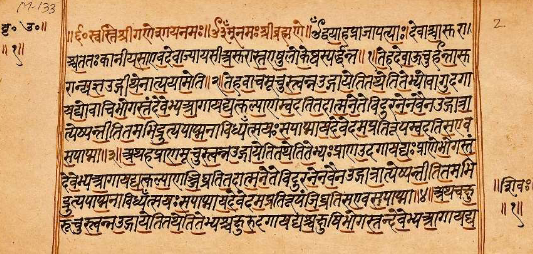 M-133
2
बृ॰ उ॰॥
॥१॥
॥स्वस्ति श्रीगणेशाय नमः॥ॐ नमः श्रीब्रह्मणे॥ॐ द्वया ह प्राजापत्याः॥देवाश्चासुरा
श्च ततः कानीयसा एव देवा ज्यायसा असुरास्त एषु लोकेष्वस्पर्द्धन्त॥१॥ते ह देवा ऊचुर्हन्तासु
रान्यज्ञ उद्गीथेनात्ययामेति॥२॥ते ह वाचमूचुस्त्वन्न उद्गायेति तथेति तेभ्यो वागुदगा
यद्यो वाचि भोगस्तं देवेभ्य आगायद्यत्कल्याणम्वदति तदात्मने ते विदुरनेन वै न उद्गात्रा
त्येष्यन्तीति तमभिद्रुत्य पाप्मनाविध्यँत्स यः स पाप्मा यदेवेदमप्रतिरूपम्वदति स एव
स पाप्मा॥३॥अथ ह प्राणमूचुस्त्वन्न उद्गायेति तथेति तेभ्यः प्राण उदगायद्यः प्राणे भोगस्तं
देवेभ्य आगायद्यत्कल्याणञ्जिघ्रति तदात्मने ते विदुरनेन वै न उद्गात्रात्येष्यन्तीति तमभि
द्रुत्य पाप्मनाविध्यँत्स यः स पाप्मा यदेवेदमप्रतिरूपञ्जिघ्रति स एव स पाप्मा॥४॥अथ ह चक्षु
रूचुस्त्वन्न उद्गायेति तथेति तेभ्यश्चक्षुरुदगायद्यश्चक्षुषि भोगस्तन्देवेभ्य आगायद्य
॥शिवः॥
॥१॥